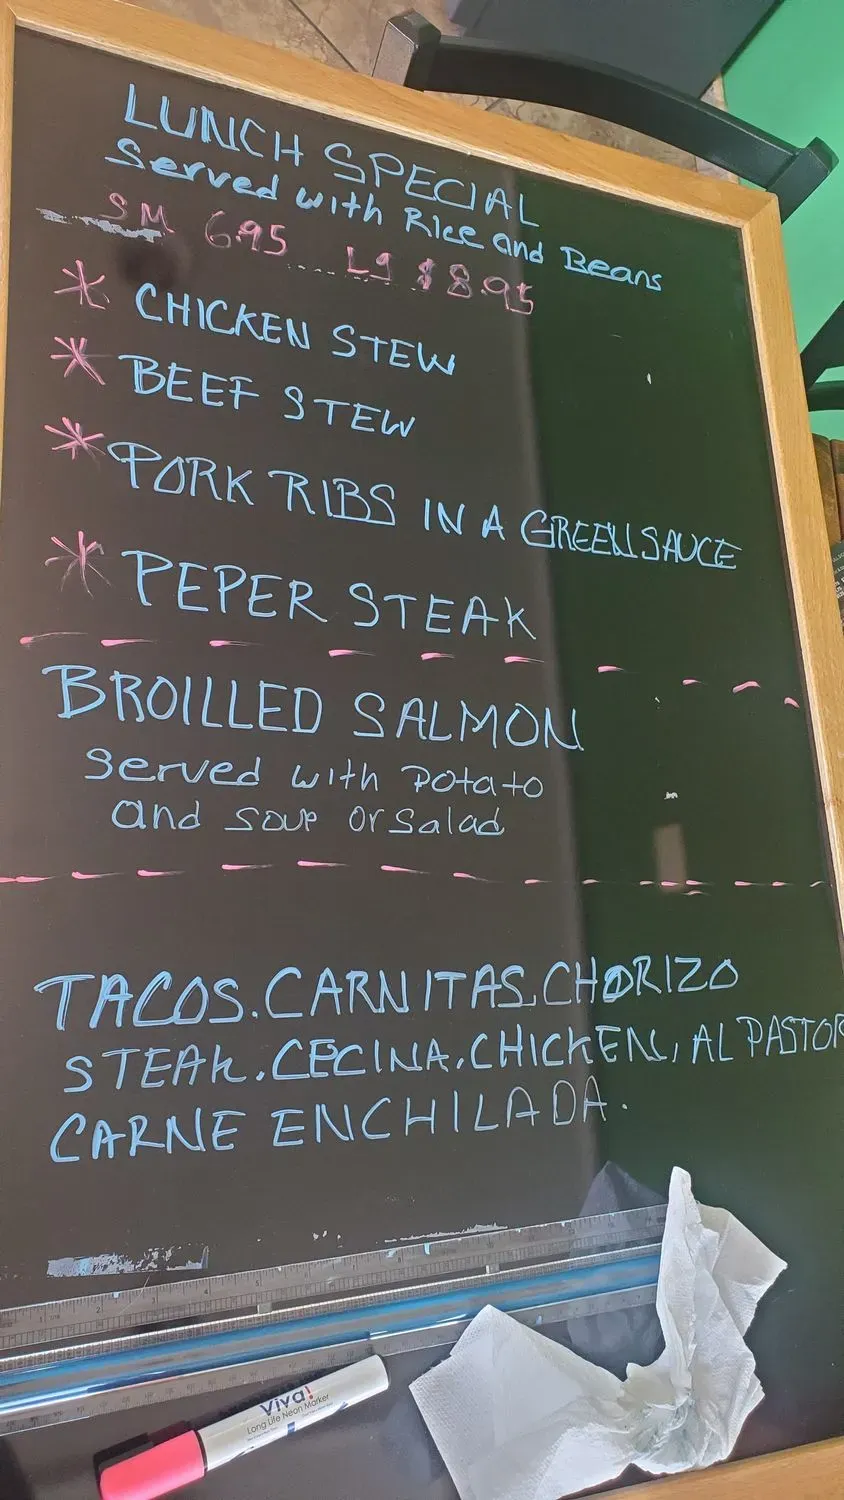 LUNCH SPECIAL
Served with Rice and Beans
SM 6.95 ..... Lg $8.95
* CHICKEN STEW
* BEEF STEW
* PORK RIBS IN A GREEN SAUCE
* PEPER STEAK
BROILLED SALMON
served with potato
and soup or salad
TACOS. CARNITAS. CHORIZO
STEAK. CECINA. CHICKEN, AL PASTOR
CARNE ENCHILADA.
Viva!
Long Life Neon Marker